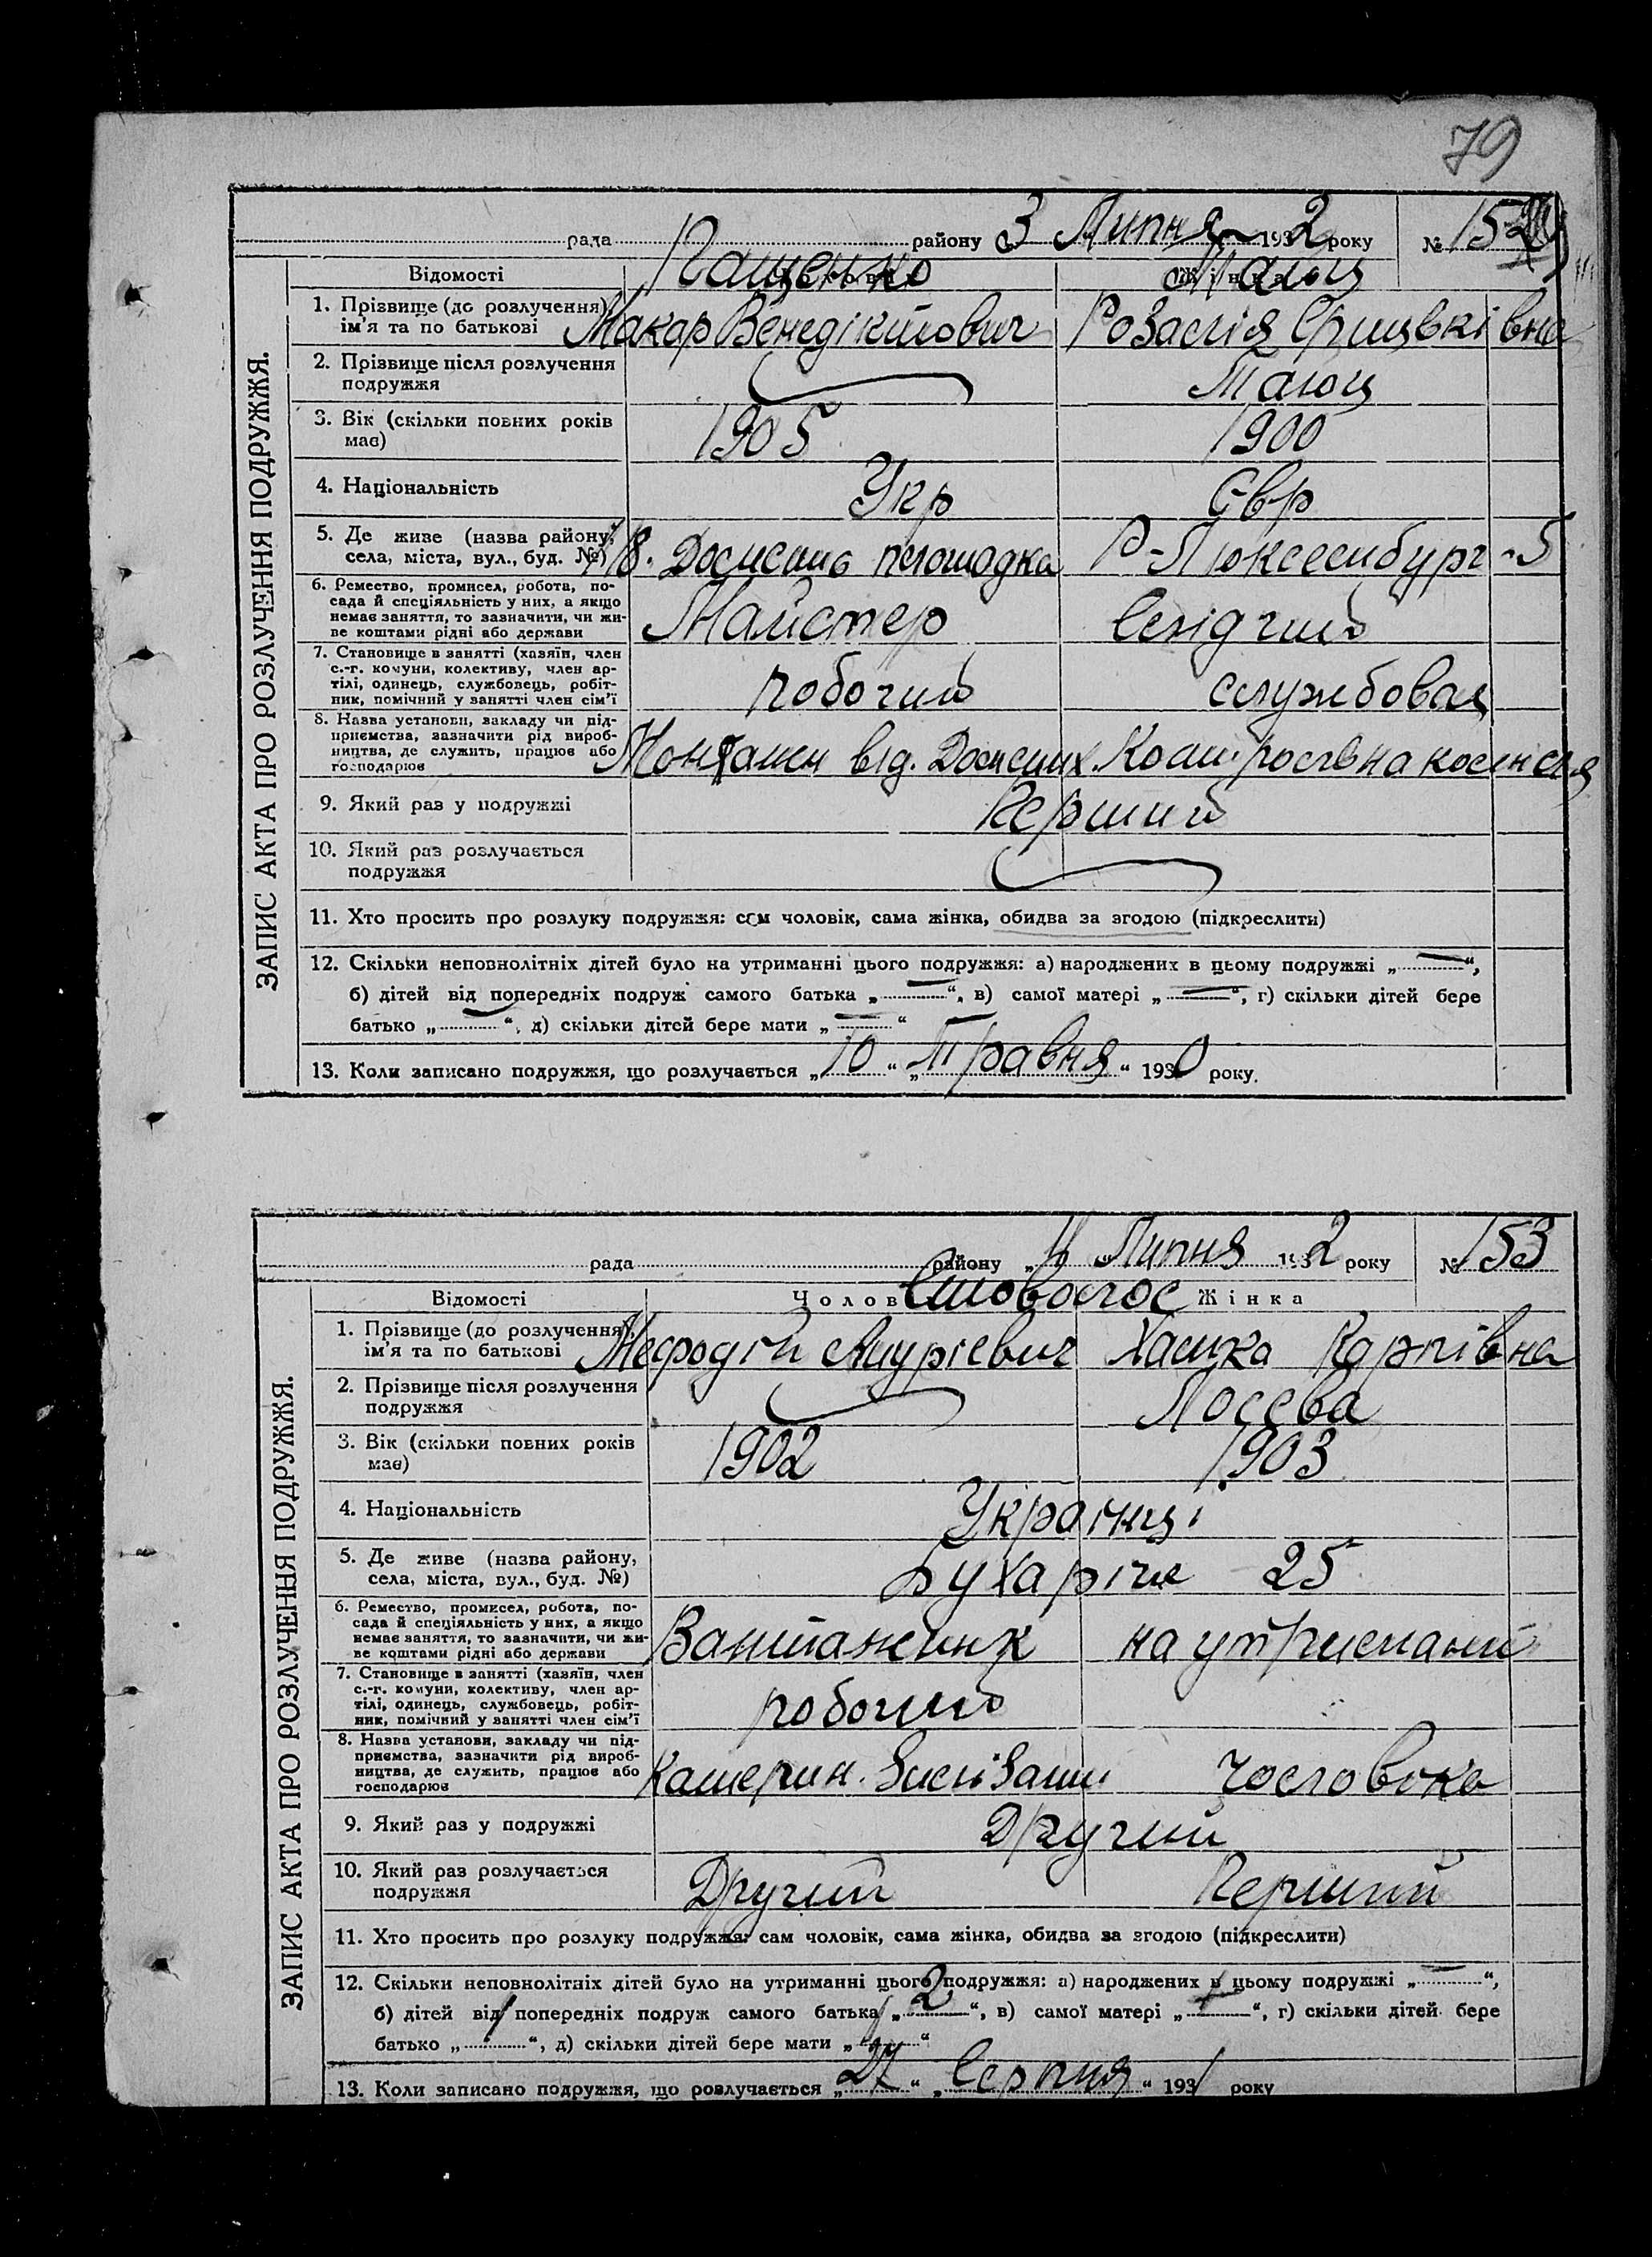 79
рада району 3 Липня 1932 року № 152
Відомості Пащенко Жінка
1. Прізвище (до розлучення)
ім'я та по батькові Макар Венедіктович Розалія
2. Прізвище після розлучення
подружжя
3. Вік (скільки повних років
має) 1905 1900
4. Національність Укр Євр
5. Де живе (назва району,
села, міста, вул., буд. №) площадка Р-Люксембург-5
6. Ремество, промисел, робота, по-
сада й спеціяльність у них, а якщо
немає заняття, то зазначити, чи жи-
ве коштами рідні або держави Майстер
7. Становище в занятті (хазяїн, член
с.-г. комуни, колективу, член ар-
тілі, одинець, службовець, робіт-
ник, помічний у занятті член сім'ї робочий службовец
8. Назва установи, закладу чи під-
приємства, зазначити рід вироб-
ництва, де служить, працює або
господарює від.
9. Який раз у подружжі Перший
10. Який раз розлучається
подружжя
11. Хто просить про розлуку подружжя: сам чоловік, сама жінка, обидва за згодою (підкреслити)
12. Скільки неповнолітніх дітей було на утриманні цього подружжя: а) народжених в цьому подружжі „ — “,
б) дітей від попередніх подруж самого батька „ — “, в) самої матері „ — “, г) скільки дітей бере
батько „ — “, д) скільки дітей бере мати „ — “
13. Коли записано подружжя, що розлучається „10“ „Травня“ 1930 року.
ЗАПИС АКТА ПРО РОЗЛУЧЕННЯ ПОДРУЖЖЯ.
рада району Липня 1932 року № 153
Відомості Чолов Стоволос Жінка
1. Прізвище (до розлучення),
ім'я та по батькові Мефодій Карпівна
2. Прізвище після розлучення
подружжя Лосева
3. Вік (скільки повних років
має) 1902 1903
4. Національність Українці
5. Де живе (назва району,
села, міста, вул., буд. №) Бухаріна 25
6. Ремество, промисел, робота, по-
сада й спеціяльність у них, а якщо
немає заняття, то зазначити, чи жи-
ве коштами рідні або держави Вантажник на утриманні
7. Становище в занятті (хазяїн, член
с.-г. комуни, колективу, член ар-
тілі, одинець, службовець, робіт-
ник, помічний у занятті член сім'ї робочий
8. Назва установи, закладу чи під-
приємства, зазначити рід вироб-
ництва, де служить, працює або
господарює Катерин. чоловіка
9. Який раз у подружжі Другий
10. Який раз розлучається
подружжя Другий Перший
11. Хто просить про розлуку подружжя: сам чоловік, сама жінка, обидва за згодою (підкреслити)
12. Скільки неповнолітніх дітей було на утриманні цього подружжя: а) народжених в цьому подружжі „ — “,
б) дітей від попередніх подруж самого батька „2“, в) самої матері „ “, г) скільки дітей бере
батько „ “, д) скільки дітей бере мати „ “
13. Коли записано подружжя, що розлучається „27“ „Серпня“ 1931 року
ЗАПИС АКТА ПРО РОЗЛУЧЕННЯ ПОДРУЖЖЯ.